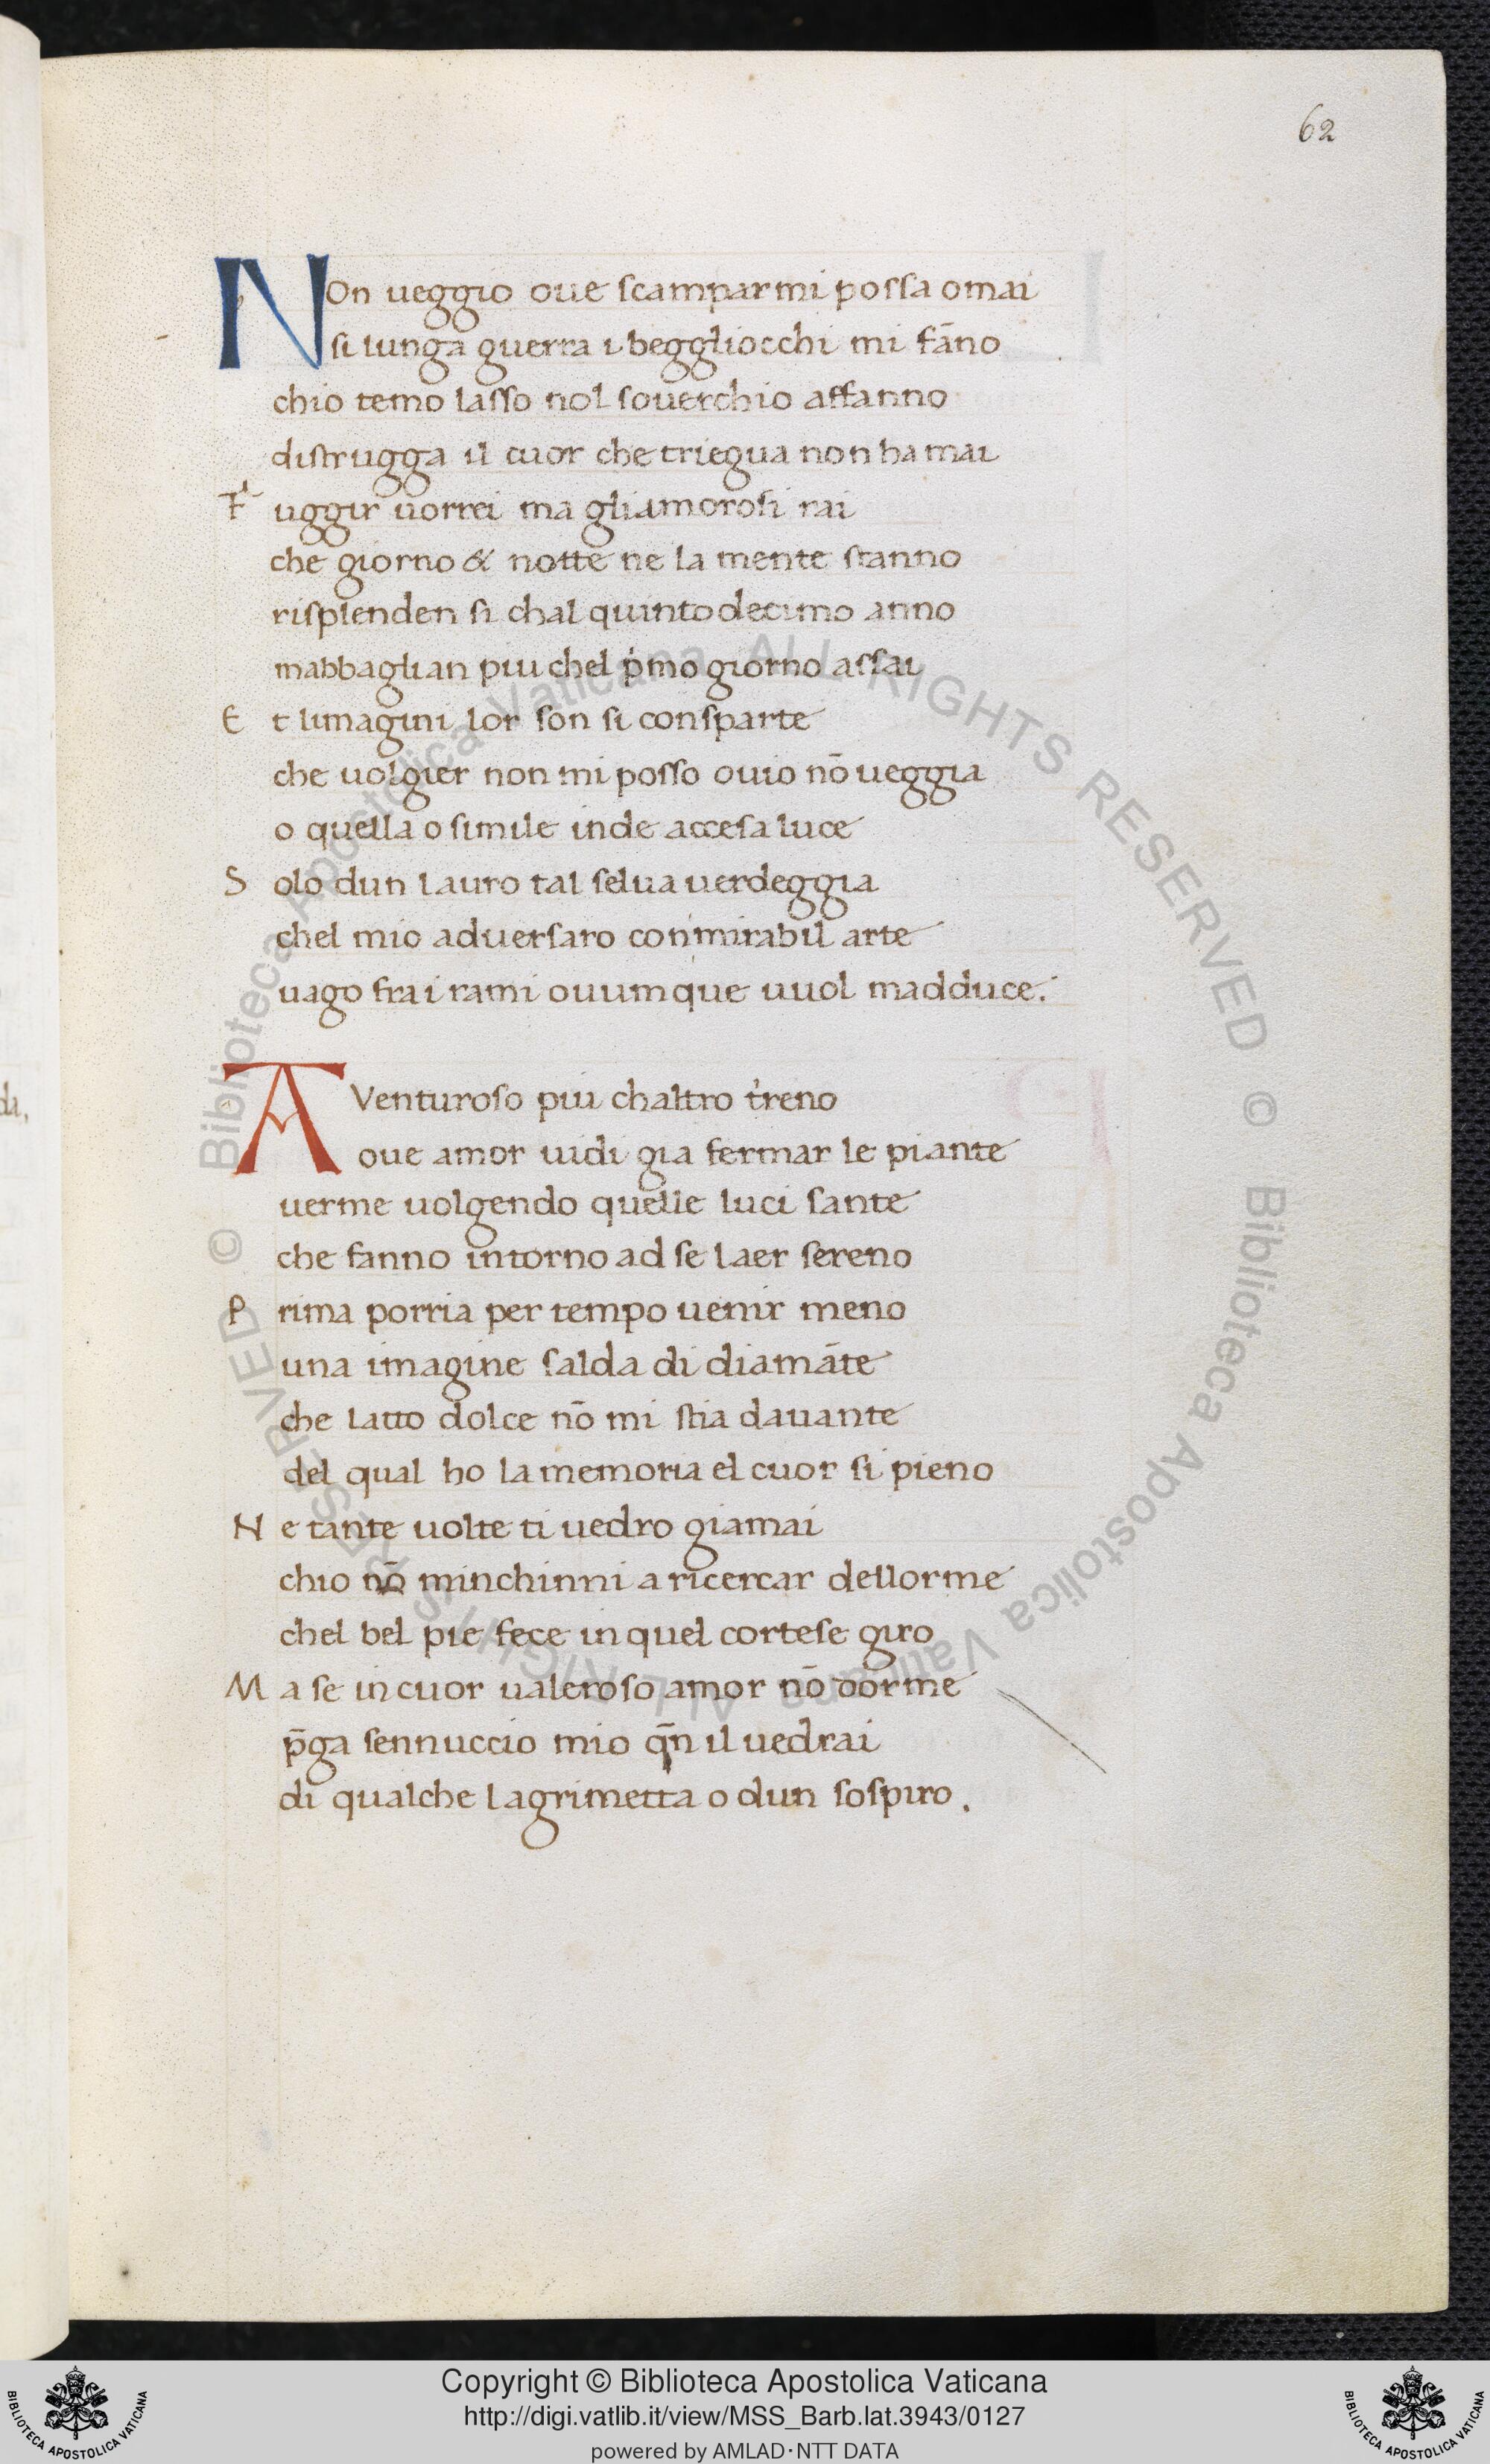 62
NOn ueggio oue scampar mi possa omai
si lunga guerra i beggliocchi mi fāno
chio temo lasso nol souerchio affanno
distrugga il cuor che triegua non ha mai
F uggir uorrei ma gliamorosi rai
che giorno & notte ne la mente stanno
risplenden si chal quintodecimo anno
mabbaglian piu chel p̍mo giorno assai
E t limagini lor son si consparte
che uolgier non mi posso ouio nō ueggia
o quella o simile inde accesa luce
S olo dun lauro tal selua uerdeggia
chel mio aduersaro con mirabil arte
uago fra i rami ouumque uuol madduce.
AVenturoso piu chaltro t̍reno
oue amor uidi gia fermar le piante
uerme uolgendo quelle luci sante
che fanno intorno ad se laer sereno
P rima porria per tempo uenir meno
una imagine salda di diamāte
che latto dolce nō mi stia dauante
del qual ho la memoria el cuor si pieno
N e tante uolte ti uedro giamai
chio nō minchinni a ricercar dellorme
chel bel pie fece in quel cortese giro
M a se in cuor ualeroso amor nō dorme
p̄ga sennuccio mio qn̄ il uedrai
di qualche lagrimetta o dun sospiro.
da,
© Biblioteca Apostolica Vaticana ALL RIGHTS RESERVED © Biblioteca Apostolica Vaticana ALL RIGHTS RESERVED
Copyright © Biblioteca Apostolica Vaticana
http://digi.vatlib.it/view/MSS_Barb.lat.3943/0127
powered by AMLAD·NTT DATA
BIBLIOTECA APOSTOLICA VATICANA
BIBLIOTECA APOSTOLICA VATICANA